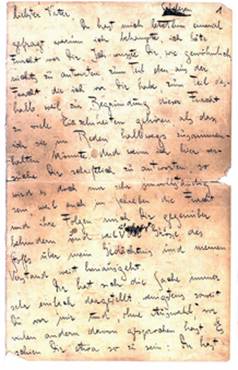 Liebster Vater, 1
Du hast mich letzthin einmal
gefragt warum ich behaupte ich hätte
Furcht vor Dir. Ich wusste Dir, wie gewöhnlich
nichts zu antworten zum Teil eben aus der
Furcht die ich vor Dir habe zum Teil des-
halb weil zur Begründung dieser Furcht
zu viele Einzelheiten gehören als dass
ich sie im Reden halbwegs zusammen-
halten könnte. Und wenn ich hier ver-
suche Dir schriftlich zu antworten so
wird es doch nur sehr unvollständig
sein weil auch im Schreiben die Furcht
und ihre Folgen mich Dir gegenüber
behindern und weil Grösse des
Stoffs über mein Gedächtnis und meinen
Verstand weit hinausgeht.
Dir hat sich die Sache immer
sehr einfach dargestellt wenigstens soweit
Du vor mir und, ohne Auswahl, vor
vielen andern davon gesprochen hast. Es
schien Dir etwa so zu sein: Du hast